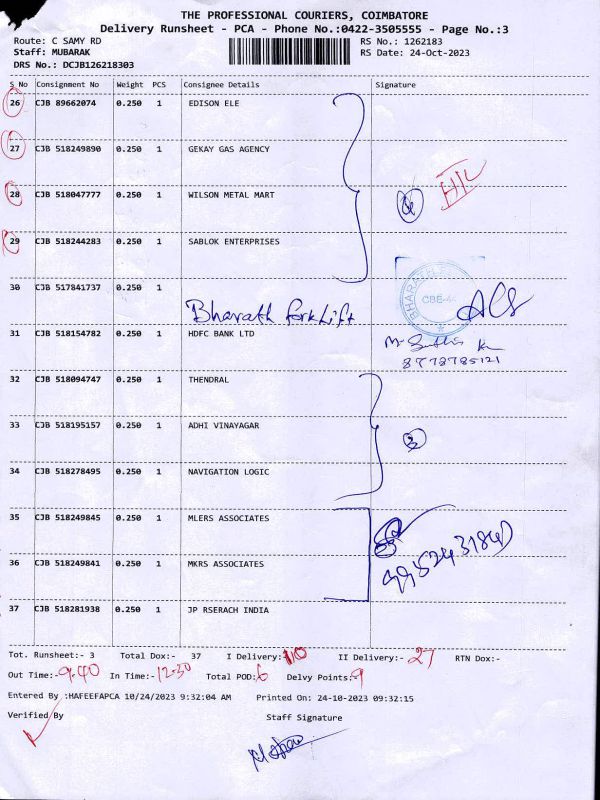 THE PROFESSIONAL COURIERS, COIMBATORE
Delivery Runsheet - PCA - Phone No.:0422-3505555 - Page No.:3
Route: C SAMY RD RS No.: 1262183
Staff: MUBARAK RS Date: 24-Oct-2023
DRS No.: DCJB126218303
S No Consignment No Weight PCS Consignee Details Signature
26 CJB 89662074 0.250 1 EDISON ELE
27 CJB 518249890 0.250 1 GEKAY GAS AGENCY
28 CJB 518047777 0.250 1 WILSON METAL MART
29 CJB 518244283 0.250 1 SABLOK ENTERPRISES
30 CJB 517841737 0.250 1
Bharath forkLift
31 CJB 518154782 0.250 1 HDFC BANK LTD
8778785121
32 CJB 518094747 0.250 1 THENDRAL
33 CJB 518195157 0.250 1 ADHI VINAYAGAR
3
34 CJB 518278495 0.250 1 NAVIGATION LOGIC
35 CJB 518249845 0.250 1 MLERS ASSOCIATES
36 CJB 518249841 0.250 1 MKRS ASSOCIATES
37 CJB 518281938 0.250 1 JP RSERACH INDIA
Tot. Runsheet:- 3 Total Dox:- 37 I Delivery:- 10 II Delivery:- 27 RTN Dox:-
Out Time:- 9.40 In Time:- 12.30 Total POD: 6 Delvy Points:- 9
Entered By :HAFEEFAPCA 10/24/2023 9:32:04 AM Printed On: 24-10-2023 09:32:15
Verified By Staff Signature